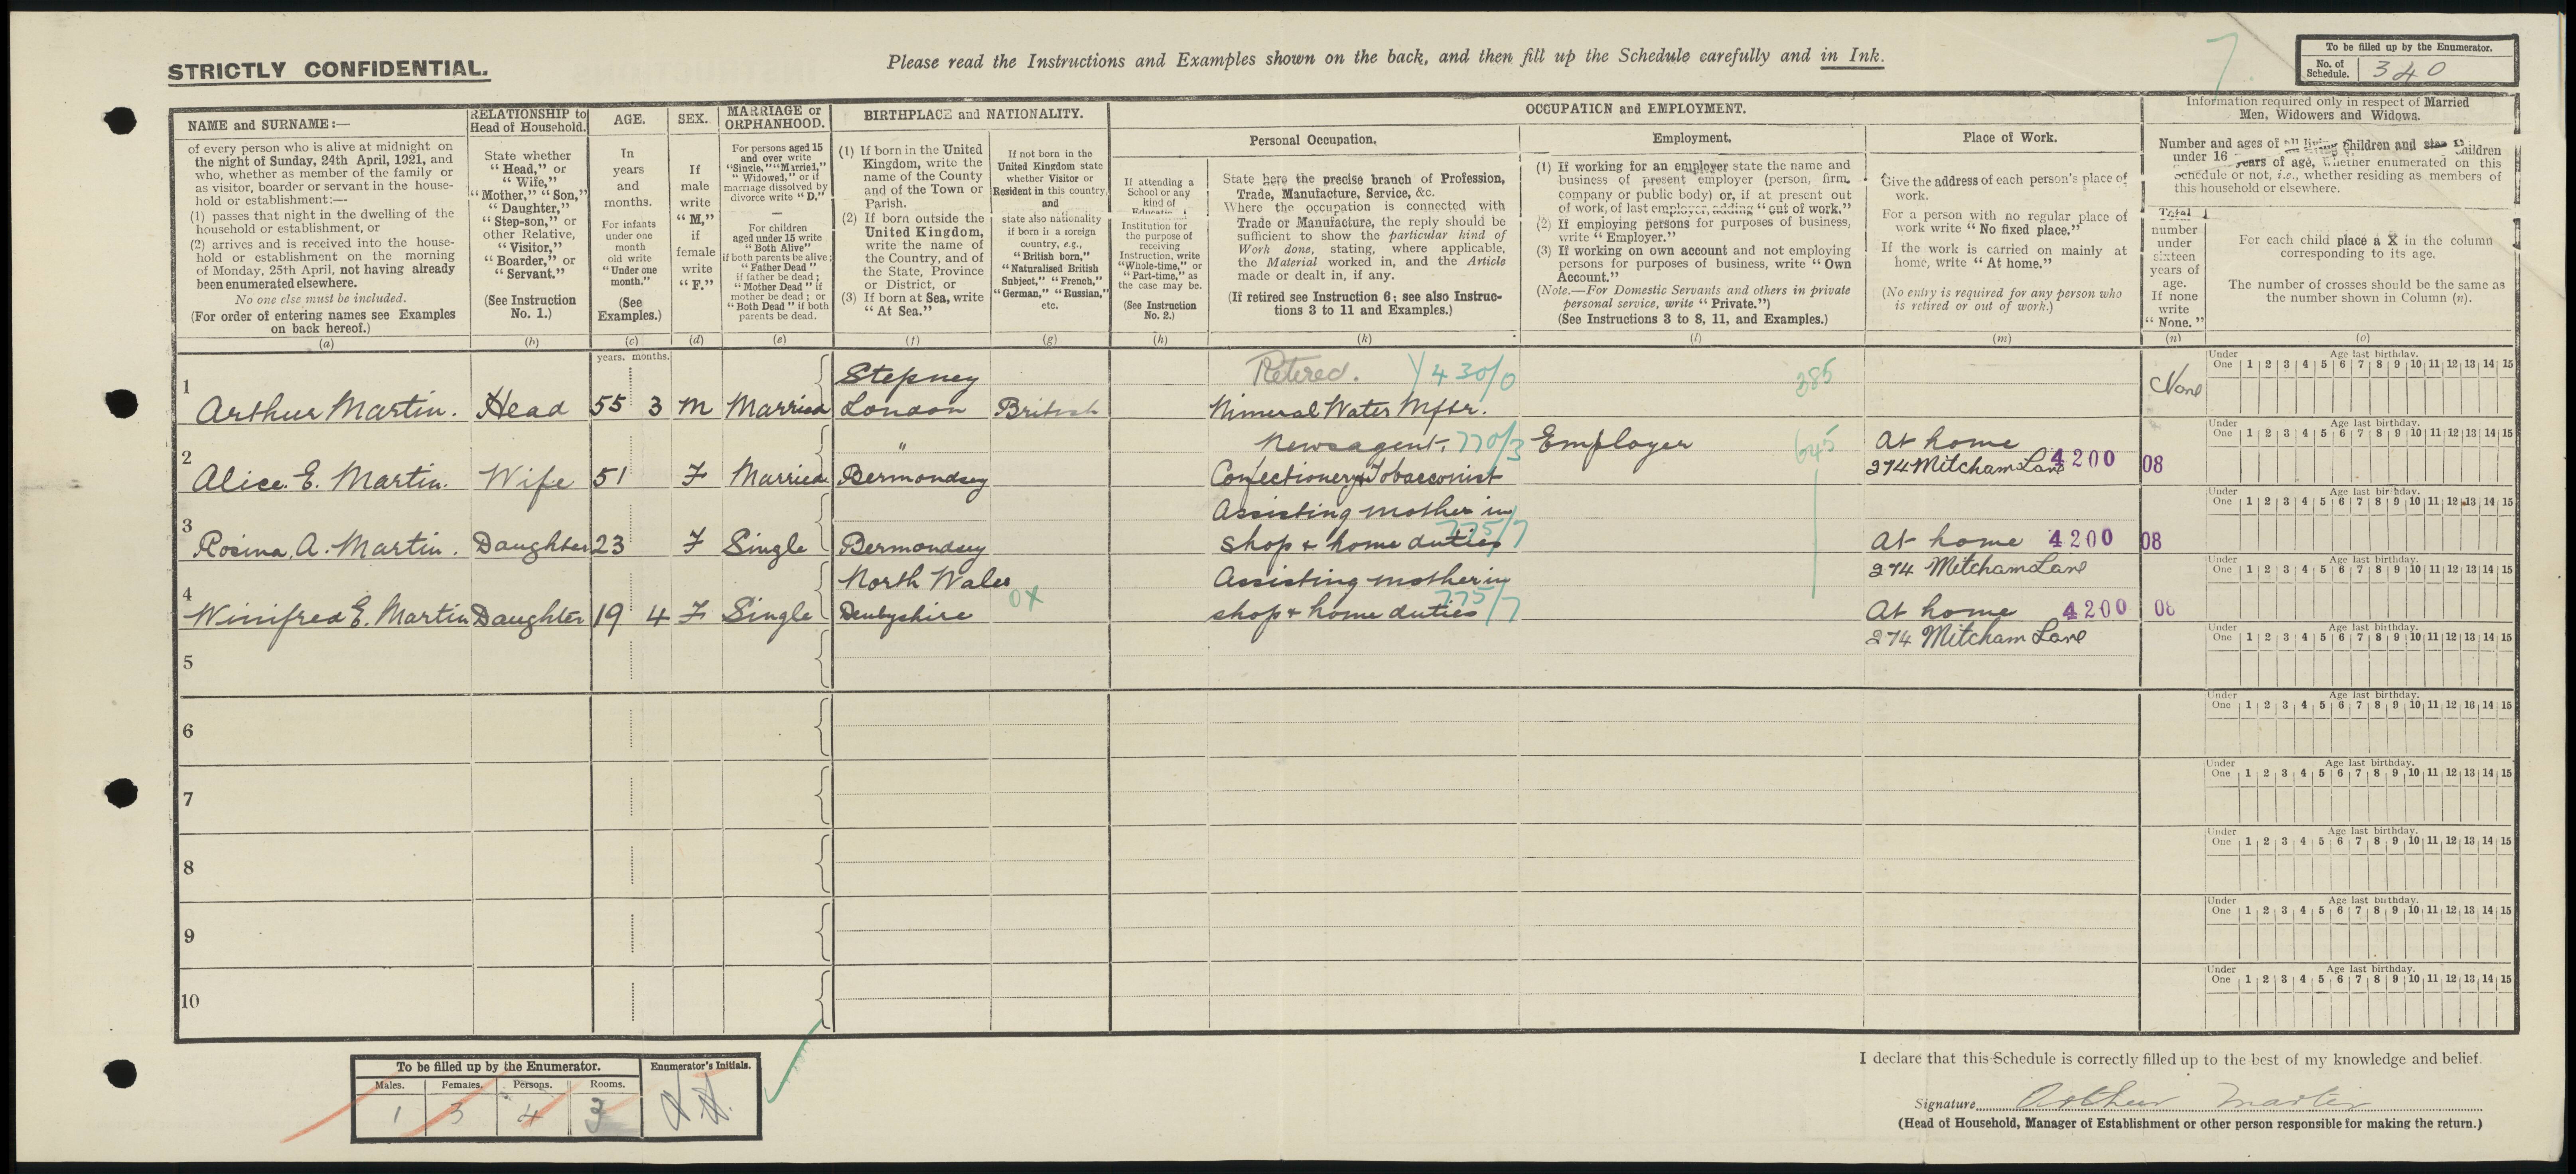 STRICTLY CONFIDENTIAL.
Please read the Instructions and Examples shown on the back, and then fill up the Schedule carefully and in Ink.
To be filled up by the Enumerator.
No. of Schedule. 340
7
NAME and SURNAME:—
of every person who is alive at midnight on
the night of Sunday, 24th April, 1921, and
who, whether as member of the family or
as visitor, boarder or servant in the house-
hold or establishment:—
(1) passes that night in the dwelling of the
household or establishment, or
(2) arrives and is received into the house-
hold or establishment on the morning
of Monday, 25th April, not having already
been enumerated elsewhere.
No one else must be included.
(For order of entering names see Examples
on back hereof.)
(a)
RELATIONSHIP to
Head of Household.
State whether
"Head," or
"Wife,"
"Mother," "Son,"
"Daughter,"
"Step-son," or
other Relative,
"Visitor,"
"Boarder," or
"Servant."
(See Instruction
No. 1.)
(b)
AGE.
In
years
and
months.
For infants
under one
month
old write
"Under one
month."
(See
Examples.)
(c)
SEX.
If
male
write
"M,"
if
female
write
"F."
(d)
MARRIAGE or
ORPHANHOOD.
For persons aged 15
and over write
"Single," "Married,"
"Widowed," or if
marriage dissolved by
divorce write "D."
—
For children
aged under 15 write
"Both Alive"
if both parents be alive;
"Father Dead"
if father be dead;
"Mother Dead" if
mother be dead; or
"Both Dead" if both
parents be dead.
(e)
BIRTHPLACE and NATIONALITY.
(1) If born in the United
Kingdom, write the
name of the County
and of the Town or
Parish.
(2) If born outside the
United Kingdom,
write the name of
the Country, and of
the State, Province
or District, or
(3) If born at Sea, write
"At Sea."
(f)
If not born in the
United Kingdom state
whether Visitor or
Resident in this country,
and
state also nationality
if born in a foreign
country, e.g.,
"British born,"
"Naturalised British
Subject," "French,"
"German," "Russian,"
etc.
(g)
OCCUPATION and EMPLOYMENT.
Personal Occupation.
If attending a
School or any
kind of
Institution for
the purpose of
receiving
Instruction, write
"Whole-time," or
"Part-time," as
the case may be.
(See Instruction
No. 2.)
(h)
State here the precise branch of Profession,
Trade, Manufacture, Service, &c.
Where the occupation is connected with
Trade or Manufacture, the reply should be
sufficient to show the particular kind of
Work done, stating, where applicable,
the Material worked in, and the Article
made or dealt in, if any.
(If retired see Instruction 6; see also Instruc-
tions 3 to 11 and Examples.)
(k)
Employment.
(1) If working for an employer state the name and
business of present employer (person, firm,
company or public body) or, if at present out
of work, of last employer, adding "out of work."
(2) If employing persons for purposes of business,
write "Employer."
(3) If working on own account and not employing
persons for purposes of business, write "Own
Account."
(Note.—For Domestic Servants and others in private
personal service, write "Private.")
(See Instructions 3 to 8, 11, and Examples.)
(l)
Place of Work.
Give the address of each person's place of
work.
For a person with no regular place of
work write "No fixed place."
If the work is carried on mainly at
home, write "At home."
(No entry is required for any person who
is retired or out of work.)
(m)
Information required only in respect of Married
Men, Widowers and Widows.
Number and ages of all living children and step children
under 16 years of age, whether enumerated on this
schedule or not, i.e., whether residing as members of
this household or elsewhere.
Total
number
under
sixteen
years of
age.
If none
write
"None."
(n)
For each child place a X in the column
corresponding to its age.
The number of crosses should be the same as
the number shown in Column (n).
(o)
years. months.
Under One Age last birthday. 1 2 3 4 5 6 7 8 9 10 11 12 13 14 15
Stepney Retired. Y430/0 385
1 Arthur Martin. Head 55 3 M Married London British Mineral Water Mftr. None
" Newsagent, 770/3 Employer 645 At home
2 Alice. E. Martin. Wife 51 F Married Bermondsey Confectionery & Tobacconist 274 Mitcham Lane 4200 08
Assisting mother in
3 Rosina. A. Martin. Daughter 23 F Single Bermondsey shop & home duties 775/7 At home 4200 08
North Wales Assisting mother in 274 Mitcham Lane
4 Winifred E. Martin Daughter 19 4 F Single Denbyshire 0X shop & home duties 775/7 At home 4200 08
274 Mitcham Lane
5
6
7
8
9
10
To be filled up by the Enumerator.
Males. Females. Persons. Rooms.
1 3 4
Enumerator's Initials.
I declare that this Schedule is correctly filled up to the best of my knowledge and belief.
Signature Arthur Martin
(Head of Household, Manager of Establishment or other person responsible for making the return.)